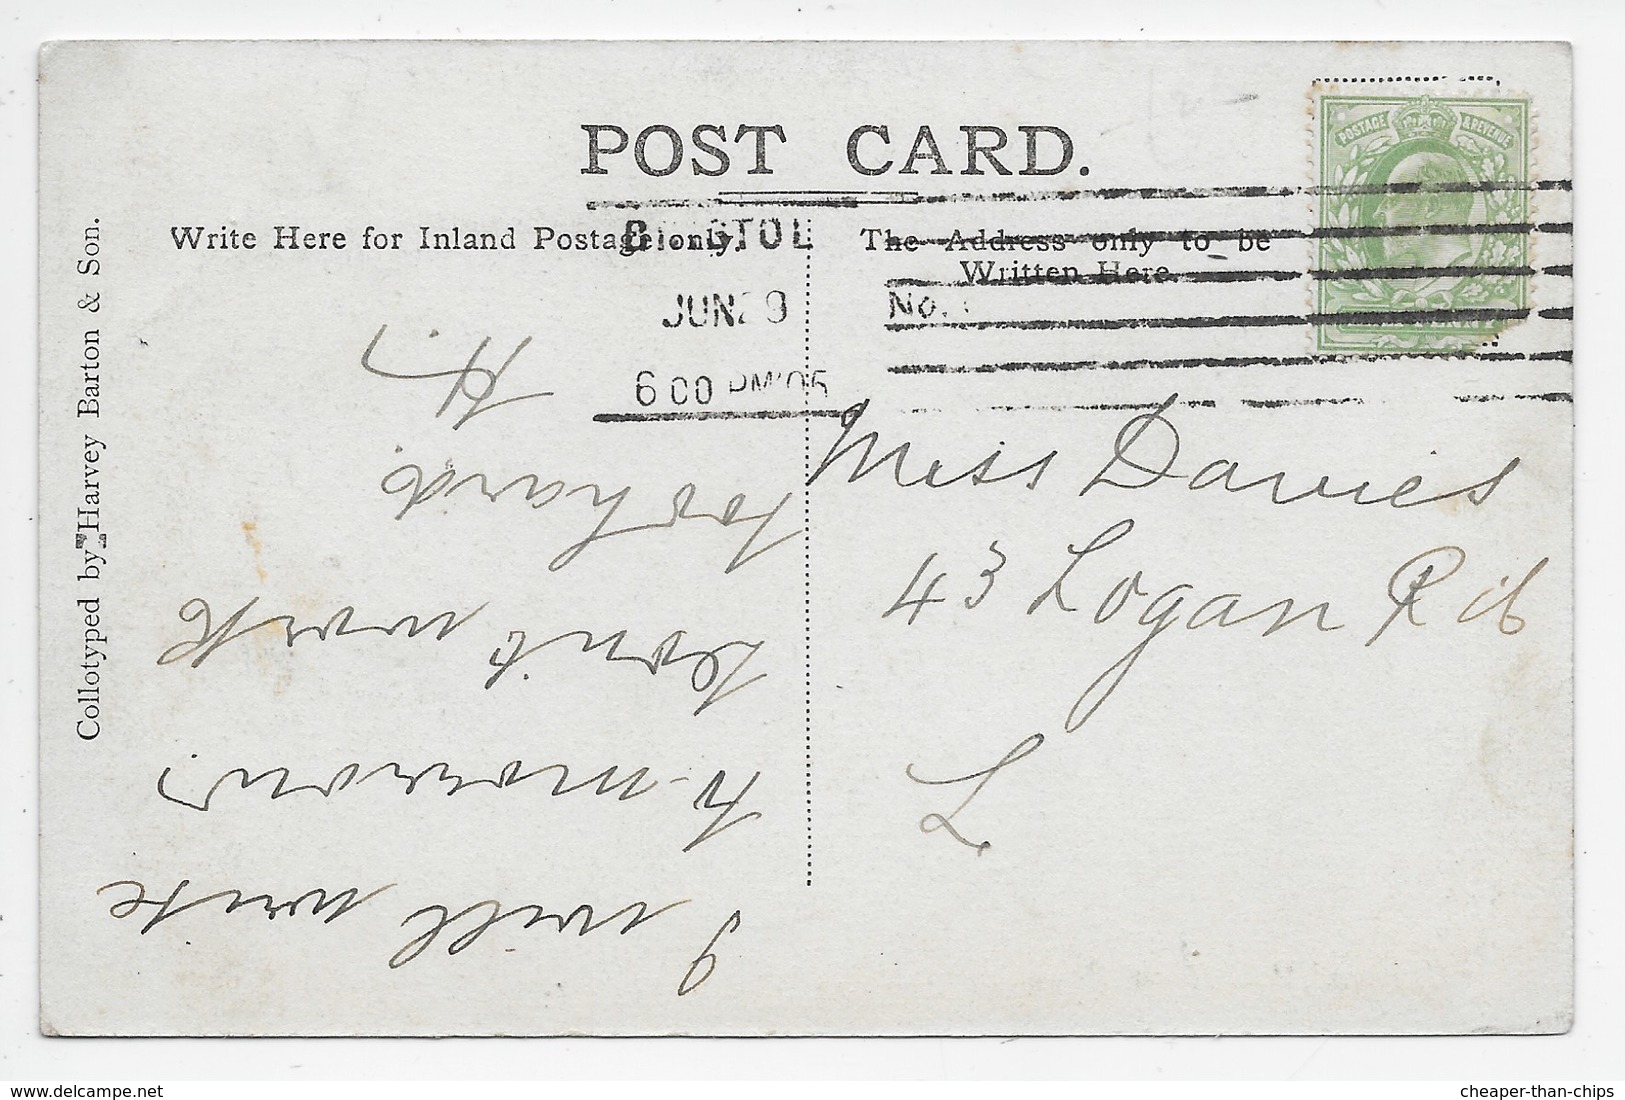 POST CARD.
Write Here for Inland Postage only.
The Address only to be
Written Here.
BRISTOL
JUN 29
6 00 PM '05
No.
POSTAGE & REVENUE
Collotyped by Harvey Barton & Son.
Miss Davies
43 Logan Rd
I will write
to-morrow
dont work
too hard
H.
delcampe.net
cheaper-than-chips